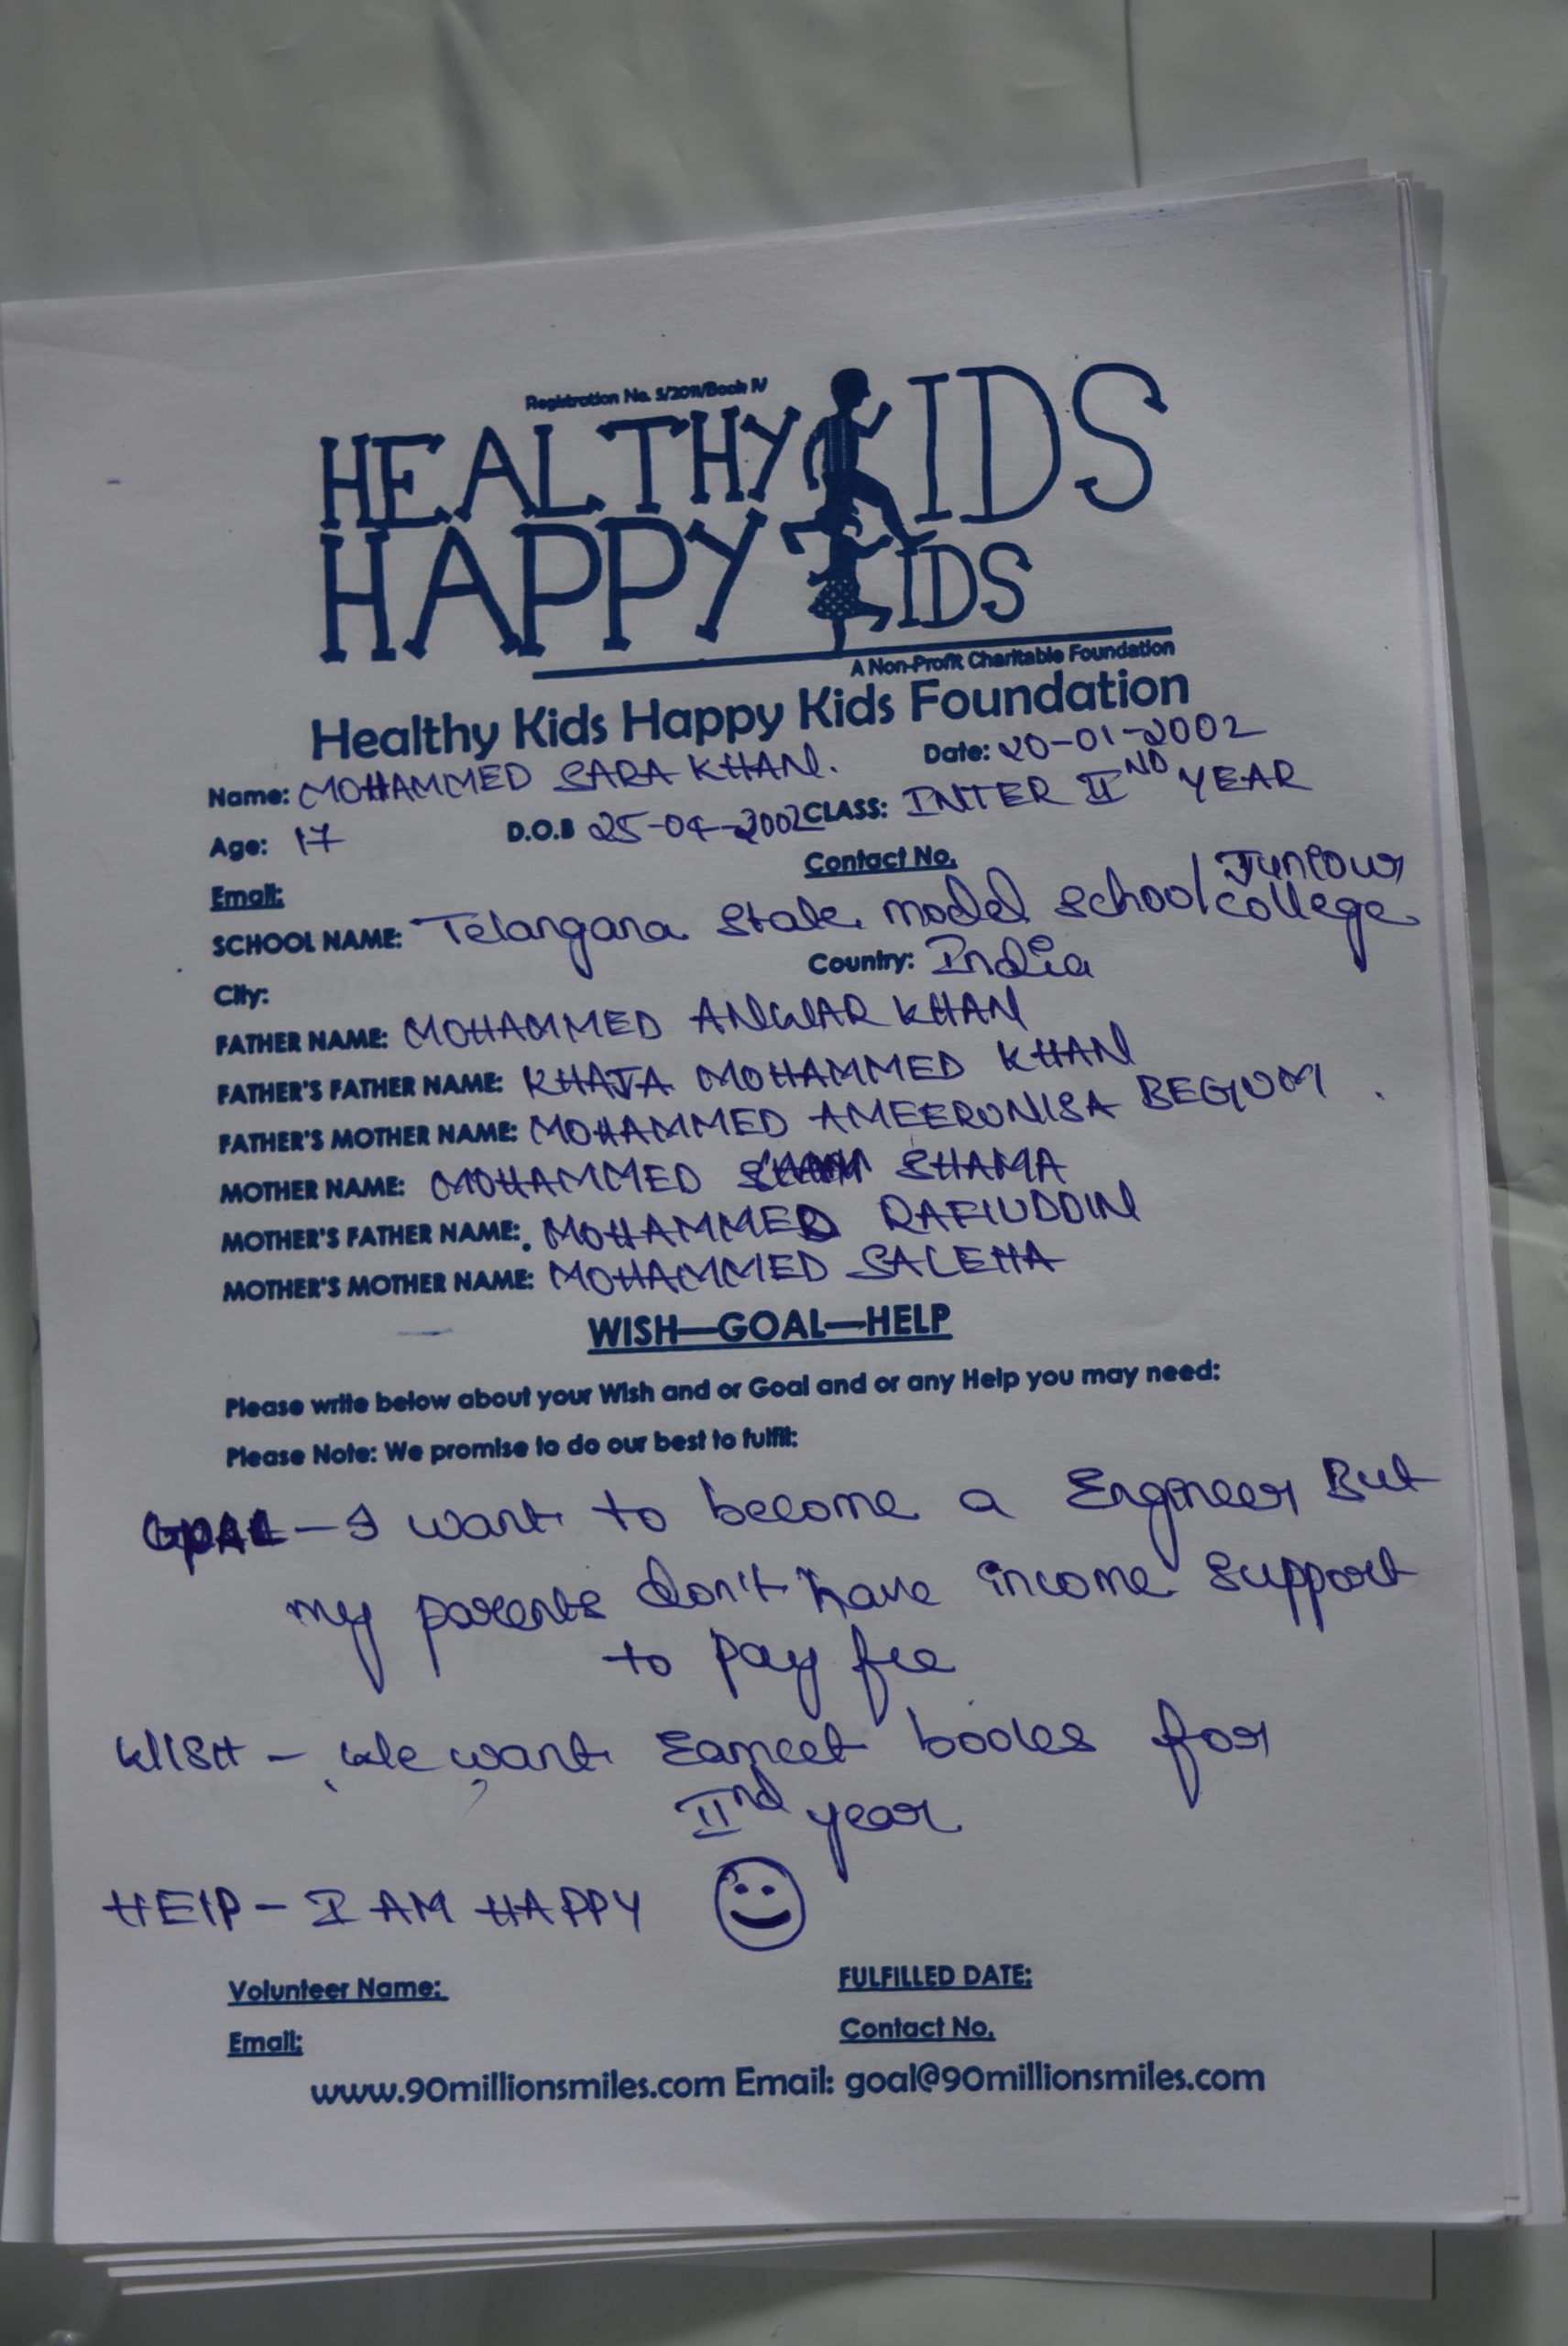 Registration No. 5/2011/Book IV
HEALTHY KIDS
HAPPY KIDS
A Non-Profit Charitable Foundation
Healthy Kids Happy Kids Foundation
Name: MOHAMMED SARA KHAN. Date: 20-01-2002
Age: 17 D.O.B 25-04-2002 CLASS: INTER II ND YEAR
Email: Contact No.
SCHOOL NAME: Telangana State model school/ Juniour college
City: Country: India
FATHER NAME: MOHAMMED ANWAR KHAN
FATHER'S FATHER NAME: KHAJA MOHAMMED KHAN
FATHER'S MOTHER NAME: MOHAMMED AMEERUNISA BEGUM
MOTHER NAME: MOHAMMED SHAMA
MOTHER'S FATHER NAME: MOHAMMED RAFIUDDIN
MOTHER'S MOTHER NAME: MOHAMMED SALEHA
WISH—GOAL—HELP
Please write below about your Wish and or Goal and or any Help you may need:
Please Note: We promise to do our best to fulfil:
GOAL - I want to become a Engineer But
my parents don't have income support
to pay fee
WISH - We want Eamcet books for
II nd year
HELP - I AM HAPPY
Volunteer Name: FULFILLED DATE:
Email: Contact No.
www.90millionsmiles.com Email: goal@90millionsmiles.com